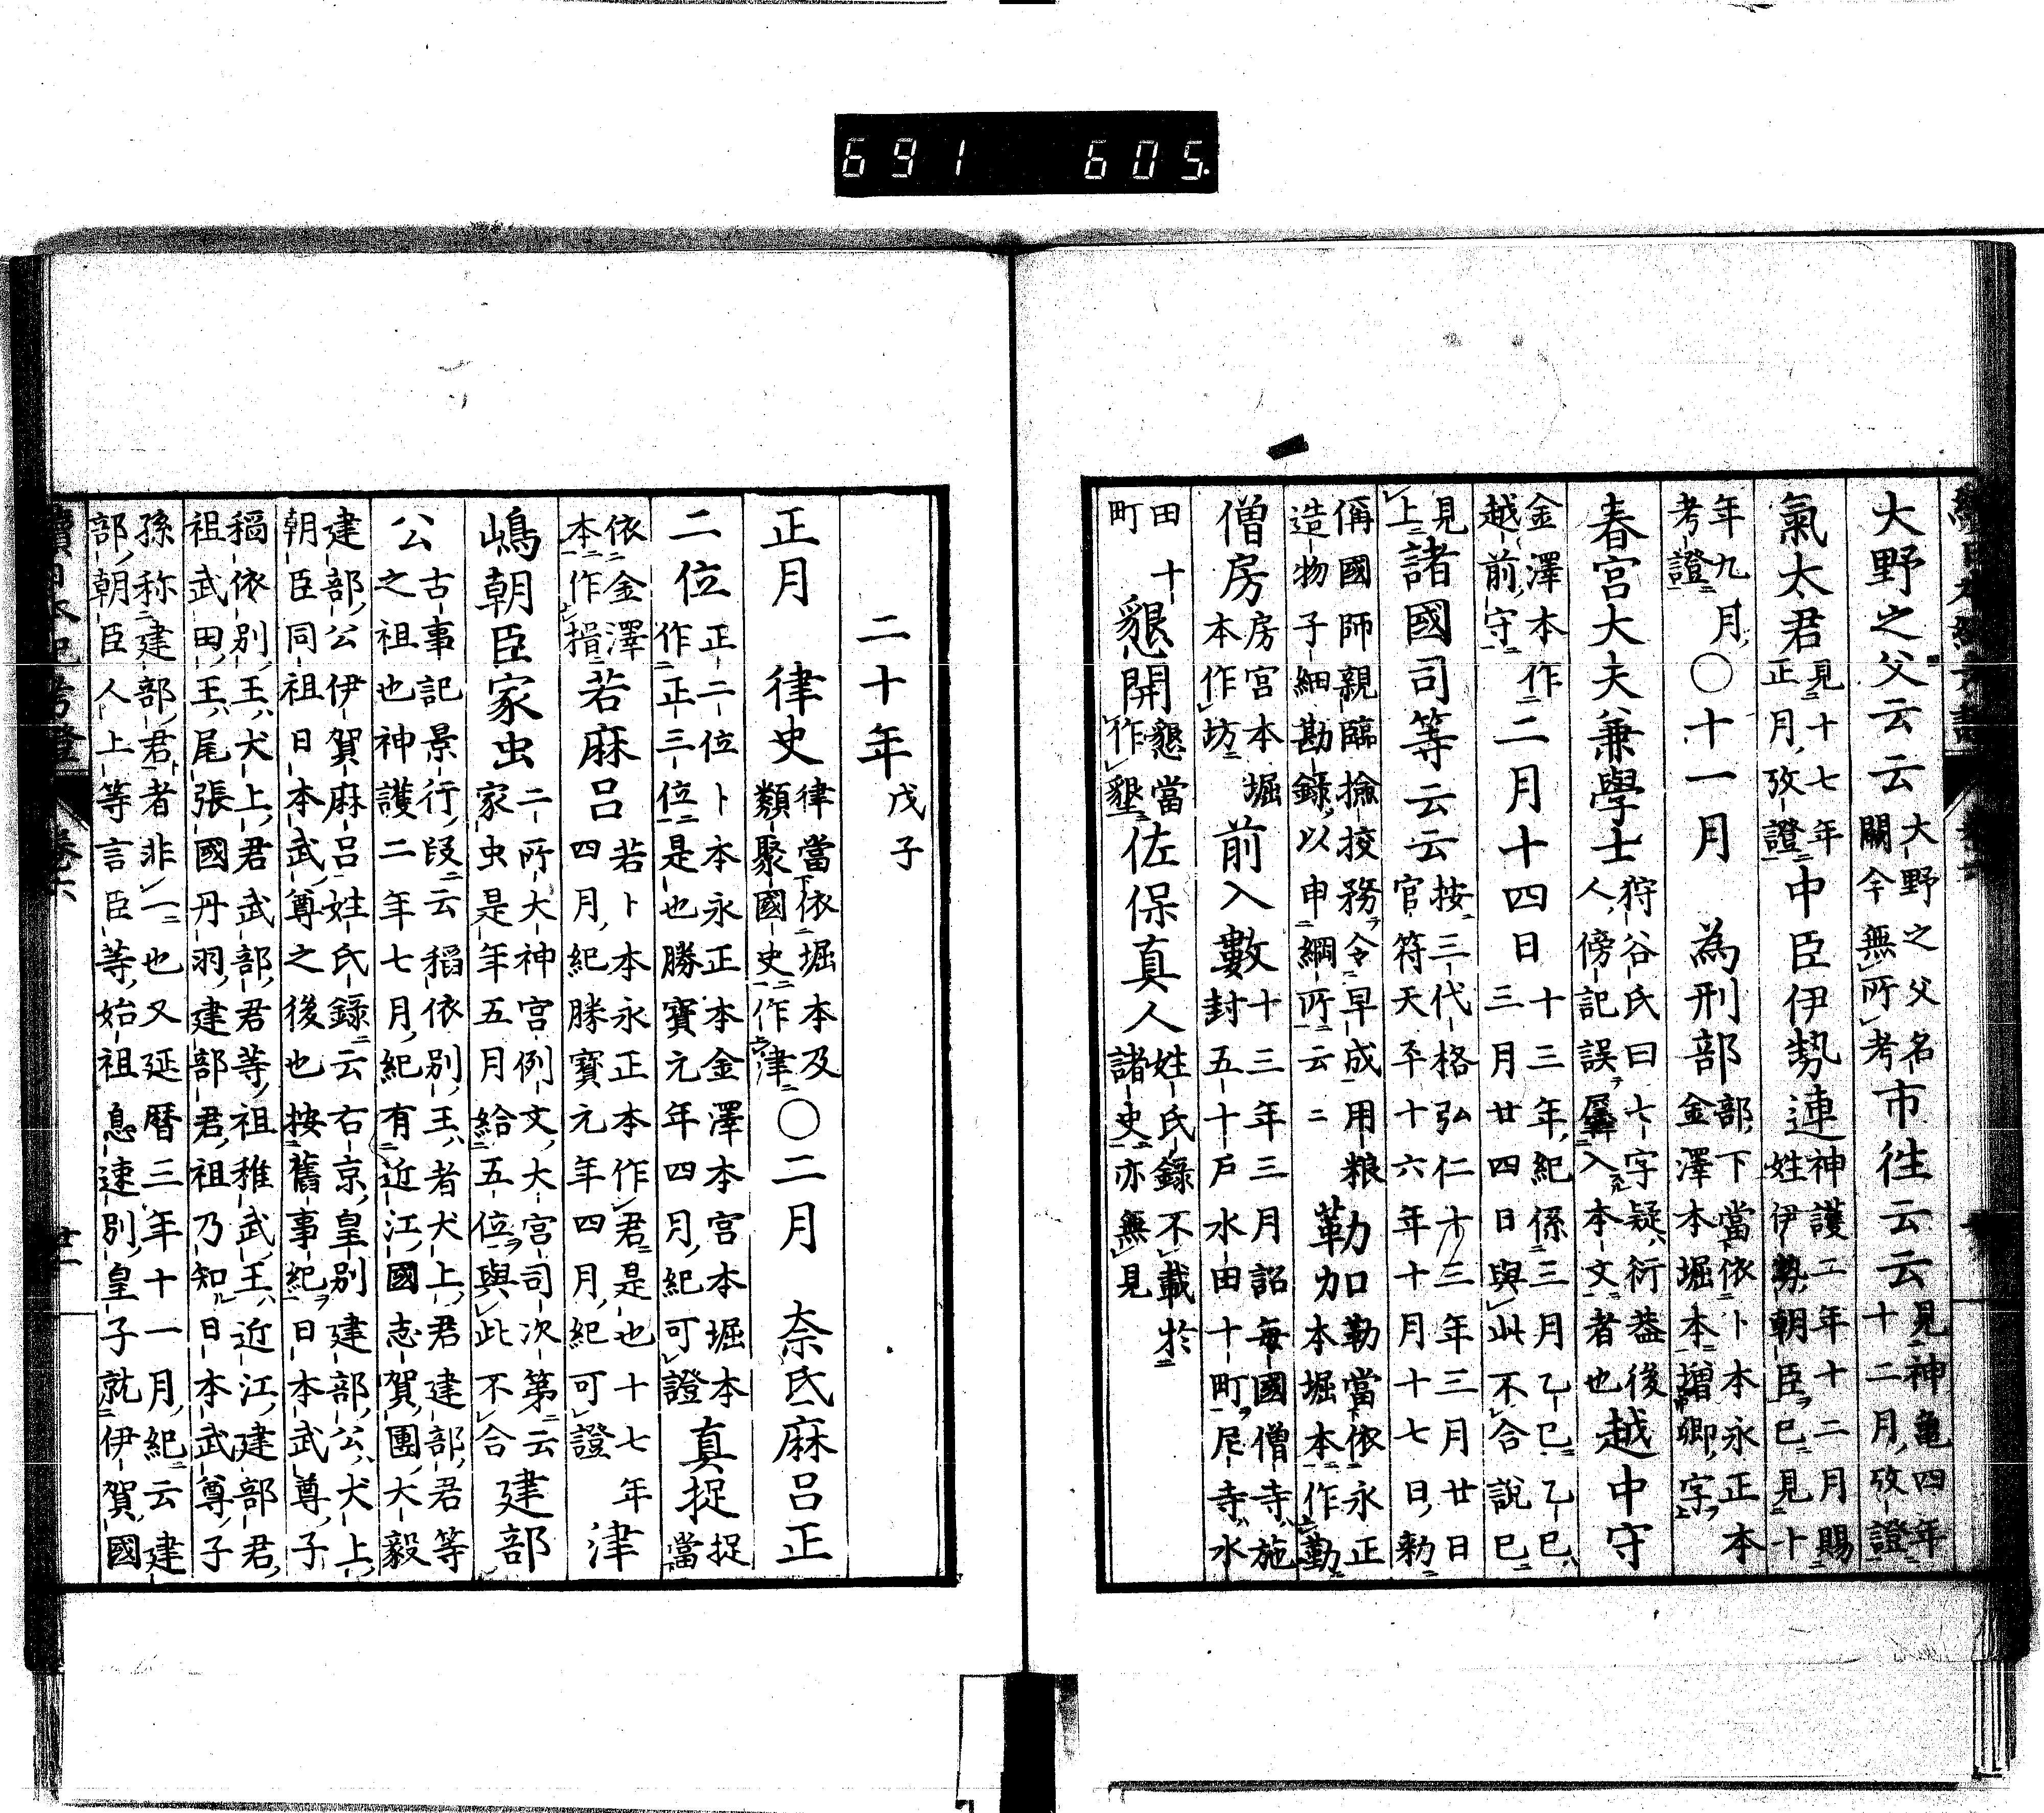 691 605.
大野之父云云 大野之父名闕今無所考 市徃云云 見神亀四年十二月攷證
氣太君 見十七年正月攷證 中臣伊勢連 神護二年十二月賜姓伊勢朝臣已見十
年九月考證 ○十一月 為刑部 部下當依卜本永正本金澤本堀本増卿字
春宮大夫兼學士 狩谷氏曰七字疑衍葢後人傍記誤羼入本文者也 越中守
金澤本作越前守 二月十四日 十三年紀係三月乙巳乙巳三月廿四日與此不合說已
見上 諸國司等云云 按三代格弘仁十三年三月廿日官符天平十六年十月十七日勅
偁國師親臨撿挍務令早成用粮造物子細勘錄以申綱所云云 勒 口勒當依永正本堀本作勤
僧房 房宮本堀本作坊 前入數 十三年三月詔每國僧寺施封五十戶水田十町尼寺水
田十町 懇開 懇當作墾 佐保真人 姓氏錄不載於諸史亦無見
二十年 戊子
正月 律史 律當依堀本及類聚國史作津 ○二月 奈氐麻呂正
二位 正二位卜本永正本金澤本宮本堀本作正三位是也勝寶元年四月紀可證 真捉 捉當
依金澤本作揖 若麻呂 若卜本永正本作君是也十七年四月紀勝寶元年四月紀可證 津
嶋朝臣家虫 二所大神宮例文大宮司次第云家虫是年五月給五位與此不合 建部
公 古事記景行段云稻依別王者犬上君建部君等之祖也神護二年七月紀有近江國志賀團大毅
建部公伊賀麻呂姓氏錄云右京皇別建部公犬上朝臣同祖日本武尊之後也按舊事紀曰本武尊子
稲依別王犬上君武部君等祖稚武王近江建部君祖武田王尾張國丹羽建部君祖乃知日本武尊子
孫称建部君者非一也又延暦三年十一月紀云建部朝臣人上等言臣等始祖息速別皇子就伊賀國